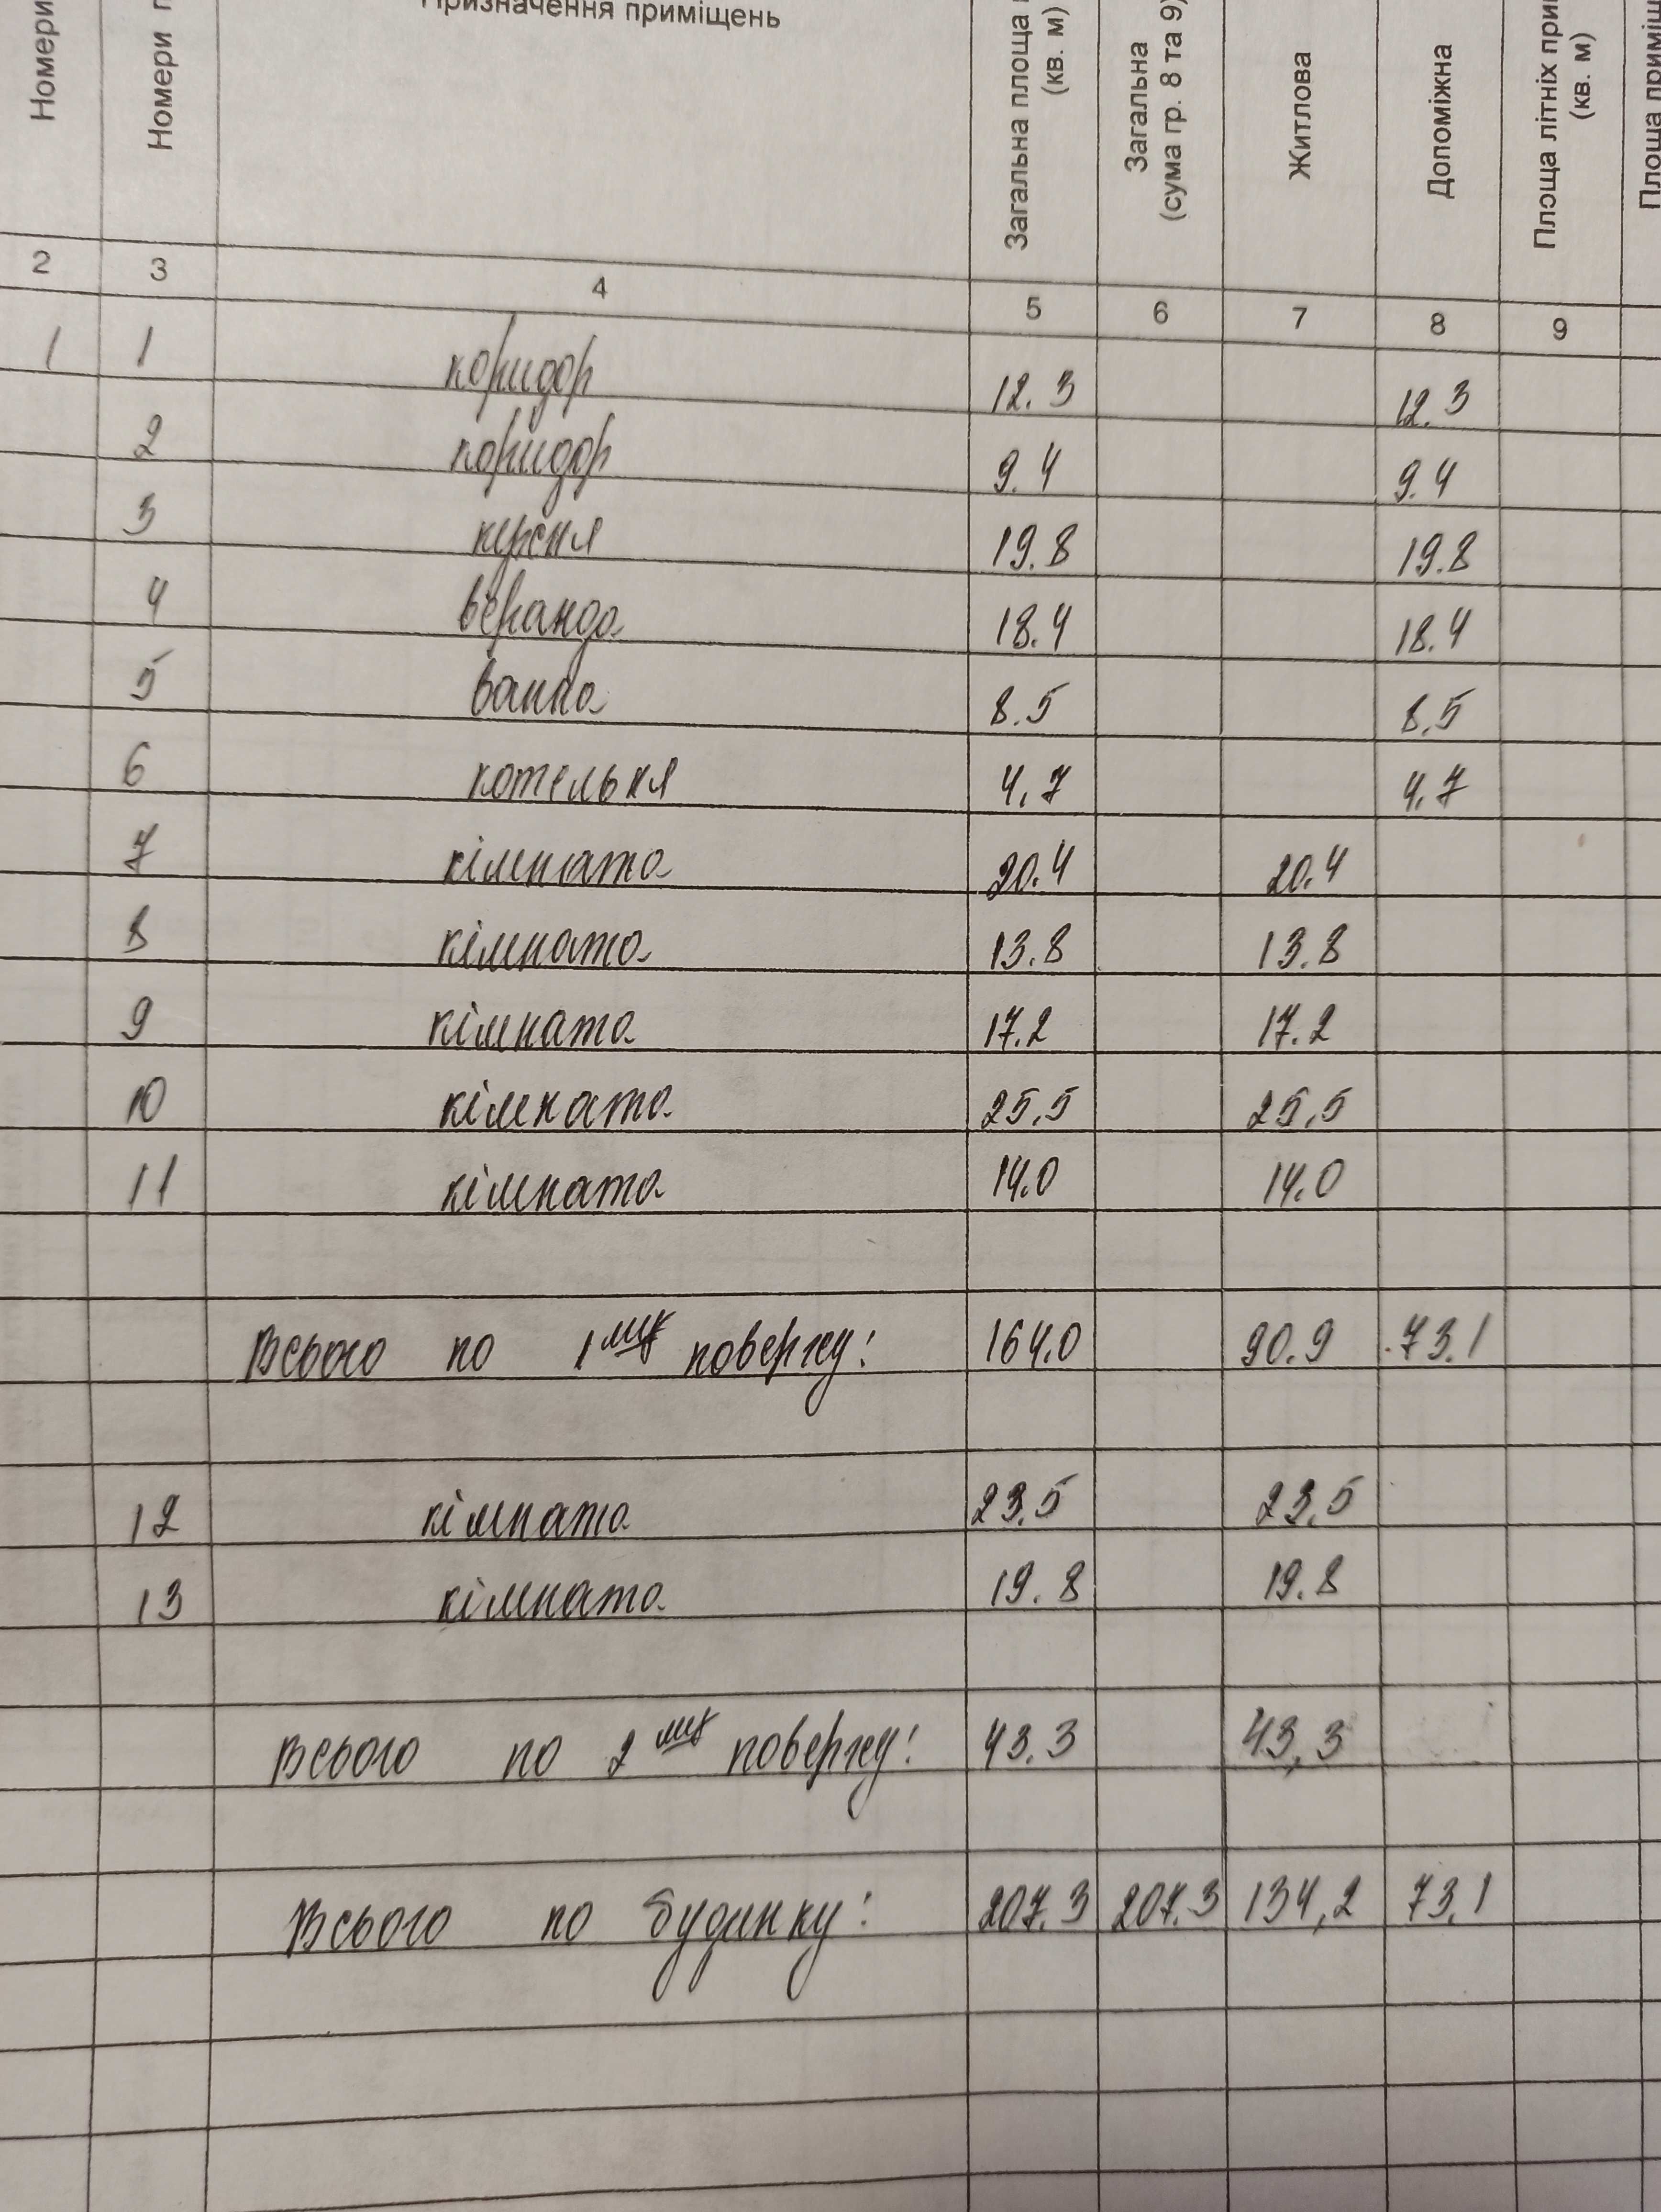 Номери
Номери
Призначення приміщень
Загальна площа
(кв. м)
Загальна
(сума гр. 8 та 9)
Житлова
Допоміжна
Площа літніх
(кв. м)
Площа
2 3 4 5 6 7 8 9
1 1 коридор 12.3 12.3
2 коридор 9.4 9.4
3 кухня 19.8 19.8
4 веранда 18.4 18.4
5 ванна 8.5 8.5
6 котельня 4,7 4,7
7 кімната 20.4 20.4
8 кімната 13.8 13.8
9 кімната 17.2 17.2
10 кімната 25,5 25,5
11 кімната 14.0 14.0
Всього по 1 поверху: 164.0 90.9 73.1
12 кімната 23.5 23.5
13 кімната 19.8 19.8
Всього по 2 поверху: 43.3 43,3
Всього по будинку: 207.3 207.3 134,2 73,1